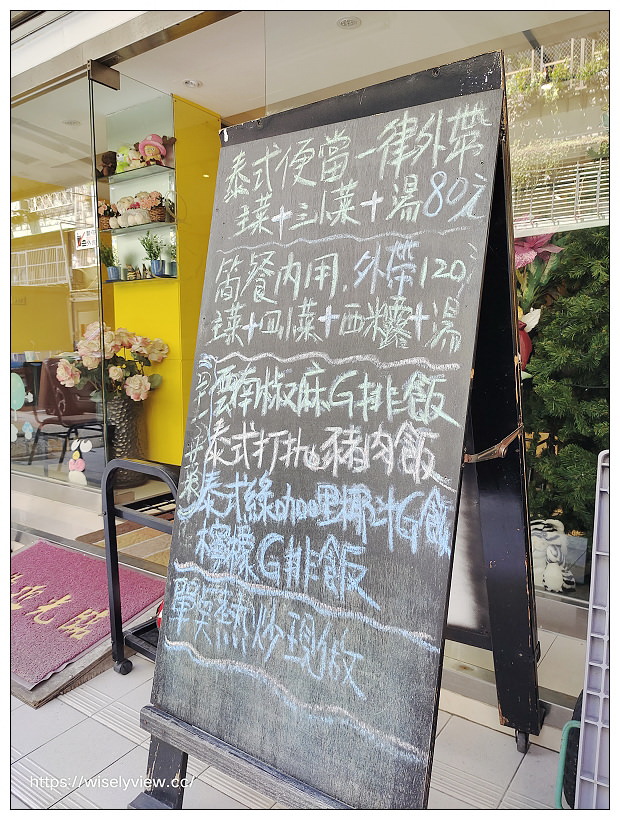 泰式便當一律外帶
主菜+三小菜+湯80元
簡餐內用.外帶120元
主菜+四小菜+西米露+湯
雲南椒麻G排飯
泰式打拋豬肉飯
泰式綠咖哩椰汁G飯
檸檬G排飯
單點熱炒現做
光臨
https://wiselyview.cc/